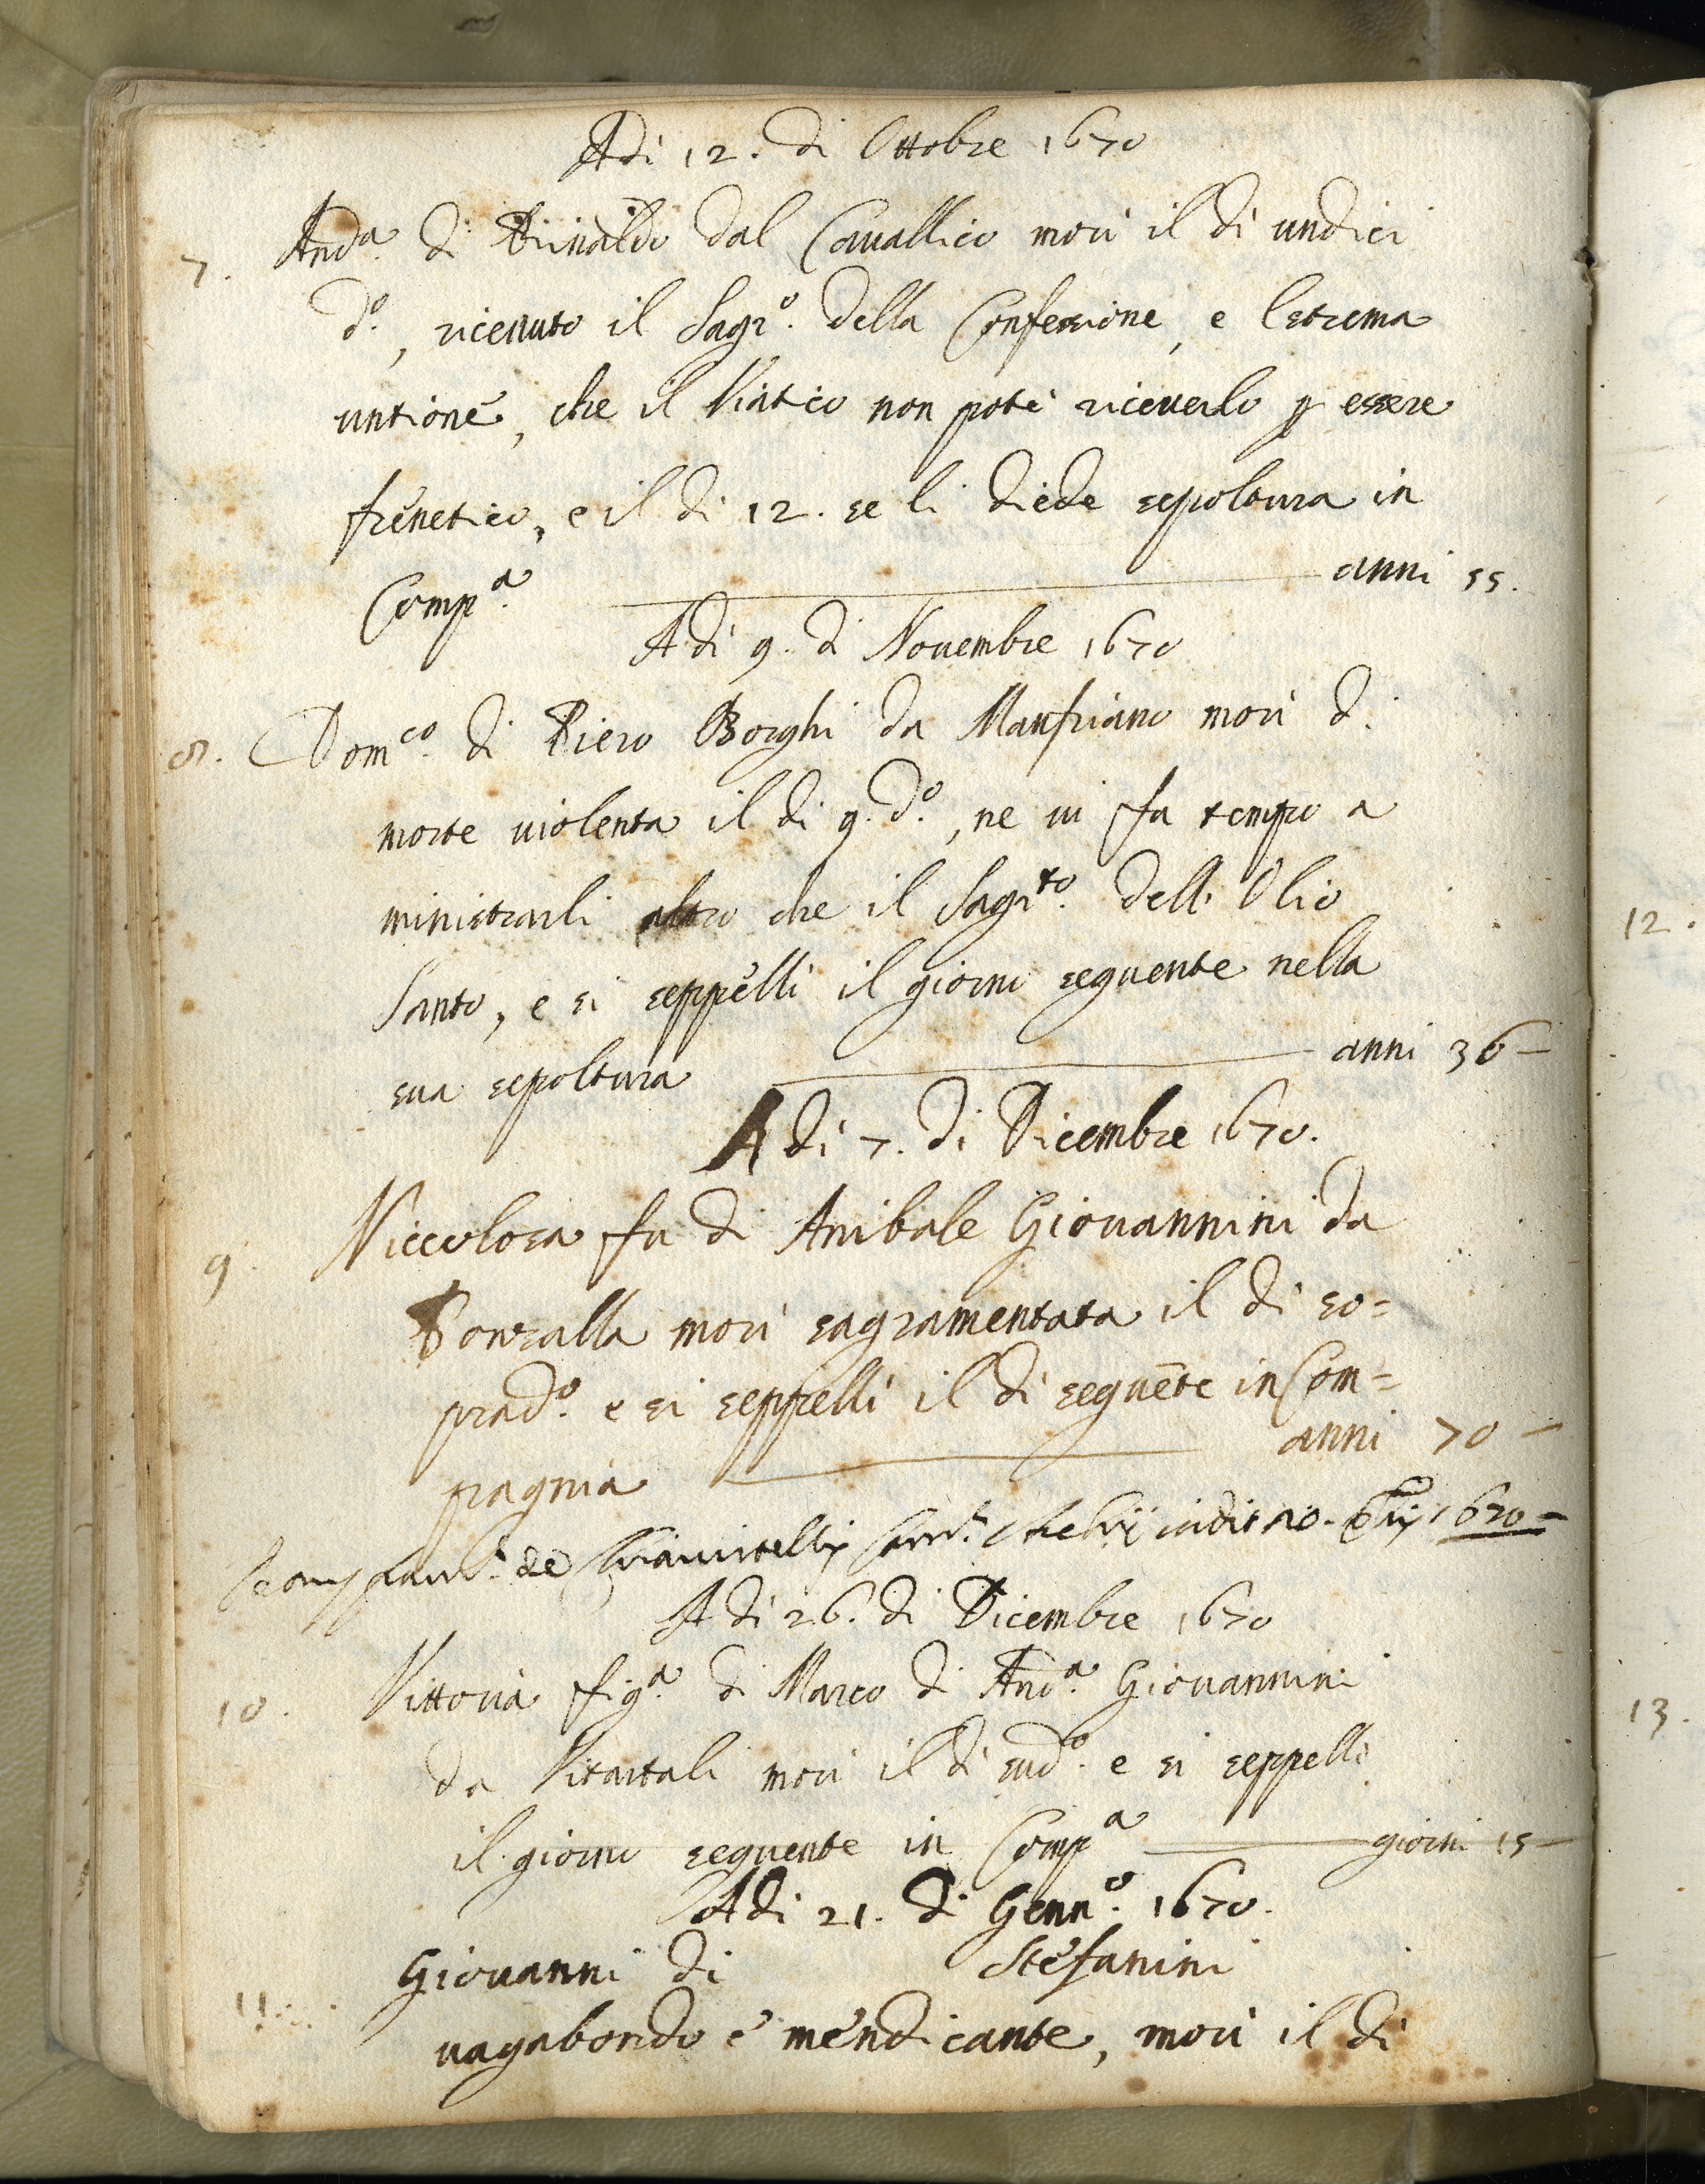 Adi 12. di Ottobre 1670
7. And.ª di Rinaldo dal Cavallico morì il dì undici
d.º, riceuuto il Sagr.º della Confessione, e lestrema
untione, che il Viatico non potè riceuerlo p essere
frenetico, e il di 12. se li diede sepoltura in
Comp.ª anni 55.
Adi 9. di Nouembre 1670
8. Dom.co di Piero Borghi da Manfriano morì di
morte uiolenta il di 9. d.º, ne ui fu tempo a
ministrarli altro che il Sagr.to dell' Olio
Santo, e si seppellì il giorno seguente nella
sua sepoltura anni 36 —
Adi 7. di Dicembre 1670.
9. Niccolosa fu di Anibale Giouannini da
morì sagramentata il di so=
prad.º e si seppellì il dì seguēte in Com=
pagnia anni 70 —
de 1670 =
Adi 26. di Dicembre 1670
10. Vittoria fig.ª di Marco di And.ª Giouannini
da morì il dì sud.º e si seppellì
il giorno seguente in Comp.ª giorni 15 —
Adi 21. di Genn.º 1670.
11. Giouanni di Stefanini
uagabondo e mendicante, morì il di
12.
13.